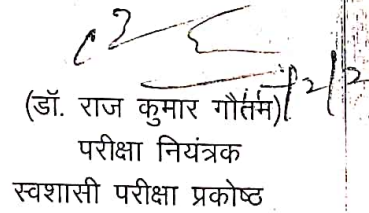 (डॉ. राज कुमार गौतम)
परीक्षा नियंत्रक
स्वशासी परीक्षा प्रकोष्ठ